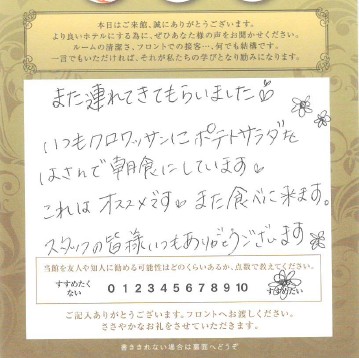 本日はご来館、誠にありがとうございます。
より良いホテルにする為に、ぜひあなた様の声をお聞かせください。
ルームの清潔さ、フロントでの接客…何でも結構です。
一言でもいただければ、それが私たちの学びとなり励みになります。
また連れてきてもらいました♡
いつもクロワッサンにポテトサラダを
はさんで朝食にしています♡
これはオススメです♡また食べに来ます。
スタッフの皆様いつもありがとうございます
当館を友人や知人に勧める可能性はどのくらいあるか、点数で教えてください。
すすめたくない 0 1 2 3 4 5 6 7 8 9 10 すすめたい
ご記入ありがとうございます。フロントへお渡しください。
ささやかなお礼をさせていただきます。
書ききれない場合は裏面へどうぞ